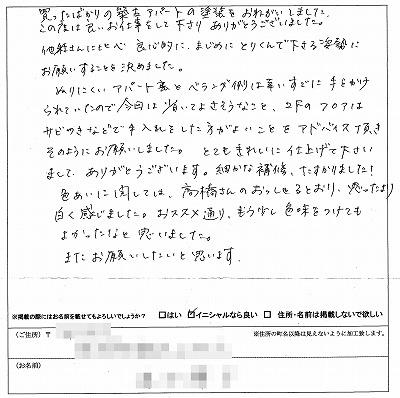 買ったばかりの築古アパートの塗装をおねがいしました。
この度は良いお仕事をして下さり ありがとうございました。
他社さんに比べ 良心的に、まじめに とりくんで下さる姿勢に
お願いすることを決めました。
ぬりにくい アパート裏と ベランダ側は 真 すぐに 手をかけ
られていたので 今回は 省いてよさそうなこと、2Fの フロアは
サビのきなどで 手入れをした方がよいことを アドバイス頂き
そのようにお願いしました。 とてもきれいに 仕上げて下さい
まして ありがとうございます。細かな補修、たすかりました!
色あいに関しては、高橋さんの おっしゃるとおり、思ったより
白く感じました。おススメ通り、もう少し 色味をつけても
よかったなと 思いました。
またお願いしたいと思います。
※掲載の際にはお名前を載せてもよろしいでしょうか? □はい ☑イニシャルなら良い □ 住所・名前は掲載しないで欲しい
(ご住所) 〒 ※住所の町名以降は見えないように加工致します。
(お名前)